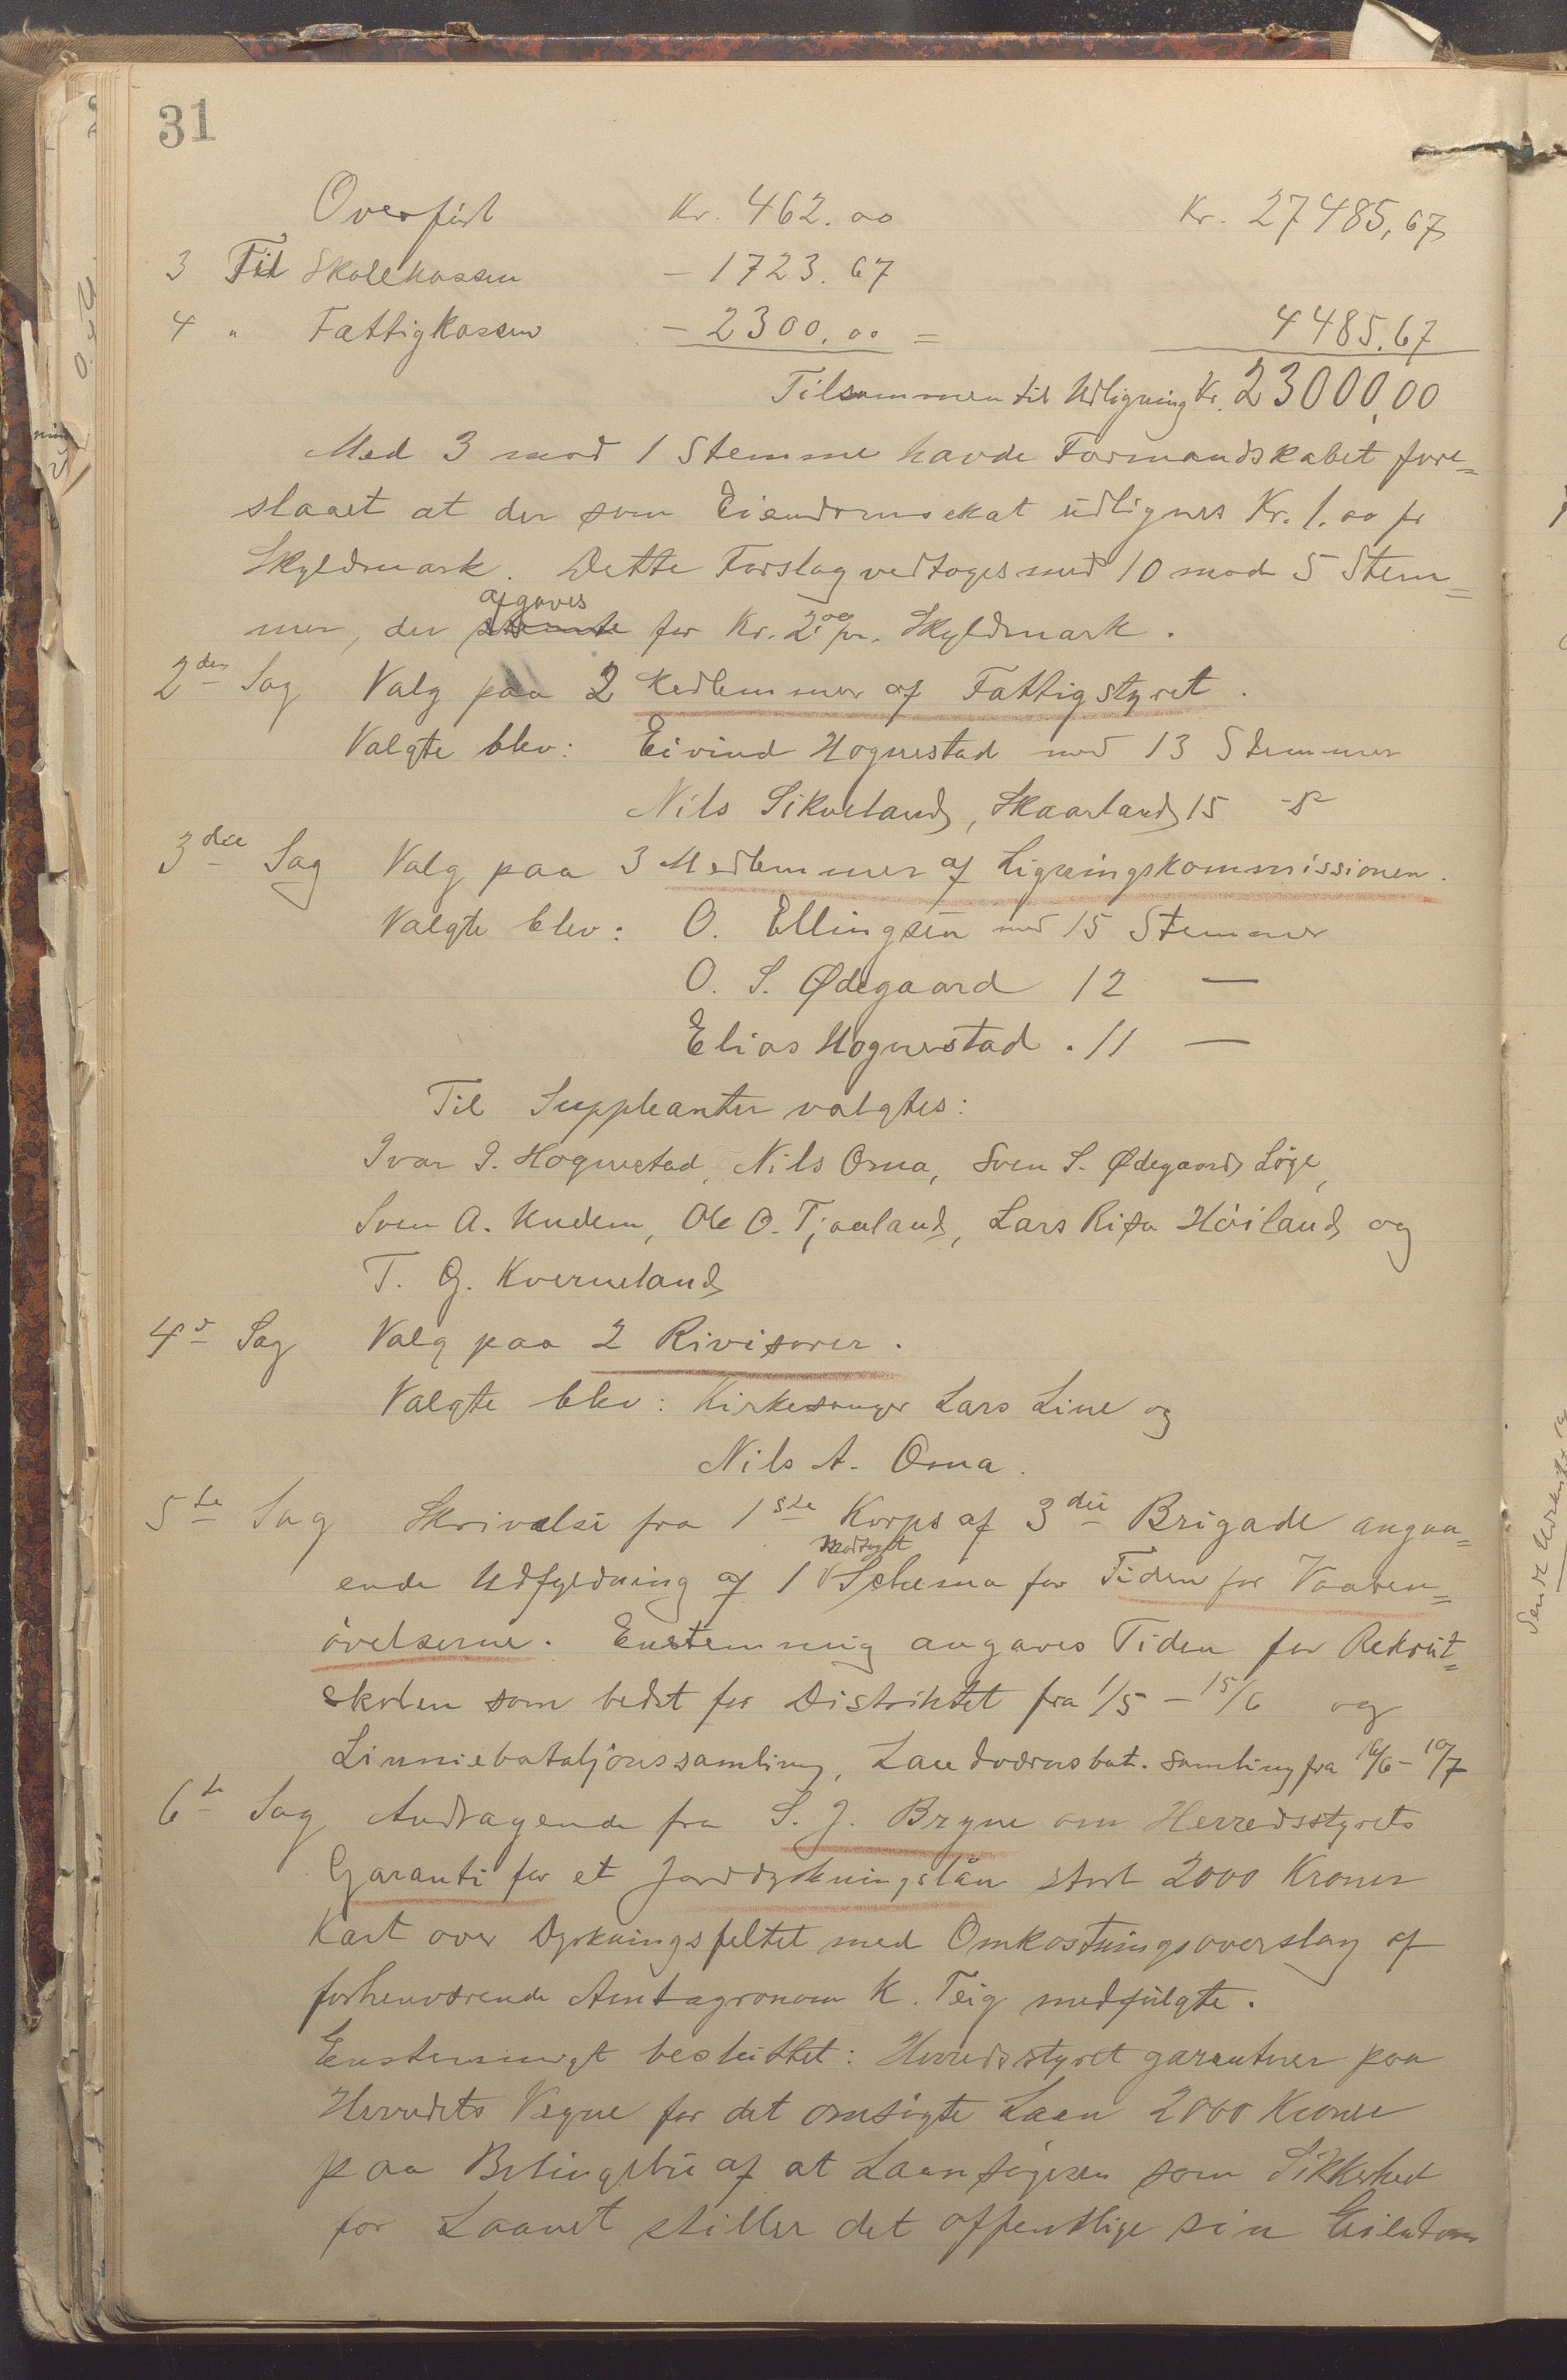 31
Overført Kr. 462.00 Kr. 27485,67
3 Til Skolekassen – 1723.67
4 " Fattigkassen – 2300,00 = 4485.67
Tilsammen til Udligning Kr. 23000,00
Med 3 mod 1 Stemme havde Formandskabet fore=
slaaet at der som Eiendomsskat udlignes Kr. 1.00 pr
Skyldmark. Dette Forslag vedtoges med 10 mod 5 Stem=
afgaves
mer, der stemte for Kr. 2.00 pr. Skyldmark.
2den Sag Valg paa 2 Medlemmer af Fattigstyret.
Valgte blev: Eivind Hognestad med 13 Stemmer
Nils Sikveland, Skaarland 15 -"-
3die Sag Valg paa 3 Medlemmer af Ligningskommissionen.
Valgte blev: O. Ellingsen med 15 Stemmer
O. S. Ødegaard 12 —
Elias Hognestad . 11 —
Til Suppleanter valgtes:
Ivar I. Hognestad, Nils Oma, Sven S. Ødegaard Løge,
Sven A. Undem, Ole O. Tjaaland, Lars Risa Høiland og
T. G. Kverneland
4de Sag Valg paa 2 Rivisorer.
Valgte blev: Kirkesanger Lars Line og
Nils A. Oma.
5te Sag Skrivelse fra 1ste Korps af 3die Brigade angaa=
modtaget
ende Udfyldning af 1 V Schema for Tiden for Vaaben=
øvelserne. Enstemmig angaves Tiden for Rekrut=
skolen som bedst for Distriktet fra 1/5 – 15/6 og
Linniebataljonssamling, Landværnsbat. samling fra 16/6 – 10/7
6te Sag Andragende fra S. J. Bryne om Herredsstyrets
Garanti for et Jorddyrkningslån stort 2000 Kroner
Kart over Dyrkningsfeltet med Omkostningsoverslag af
forhenværende Amtagronom K. Teig medfulgte.
Enstemmigt besluttet: Herredsstyret garanterer paa
Herredets Vegne for det omsøgte Laan 2000 Kroner
paa Betingelse af at Laansøgeren som Sikkerhed
for Laanet stiller det offentlige sin Eiendom